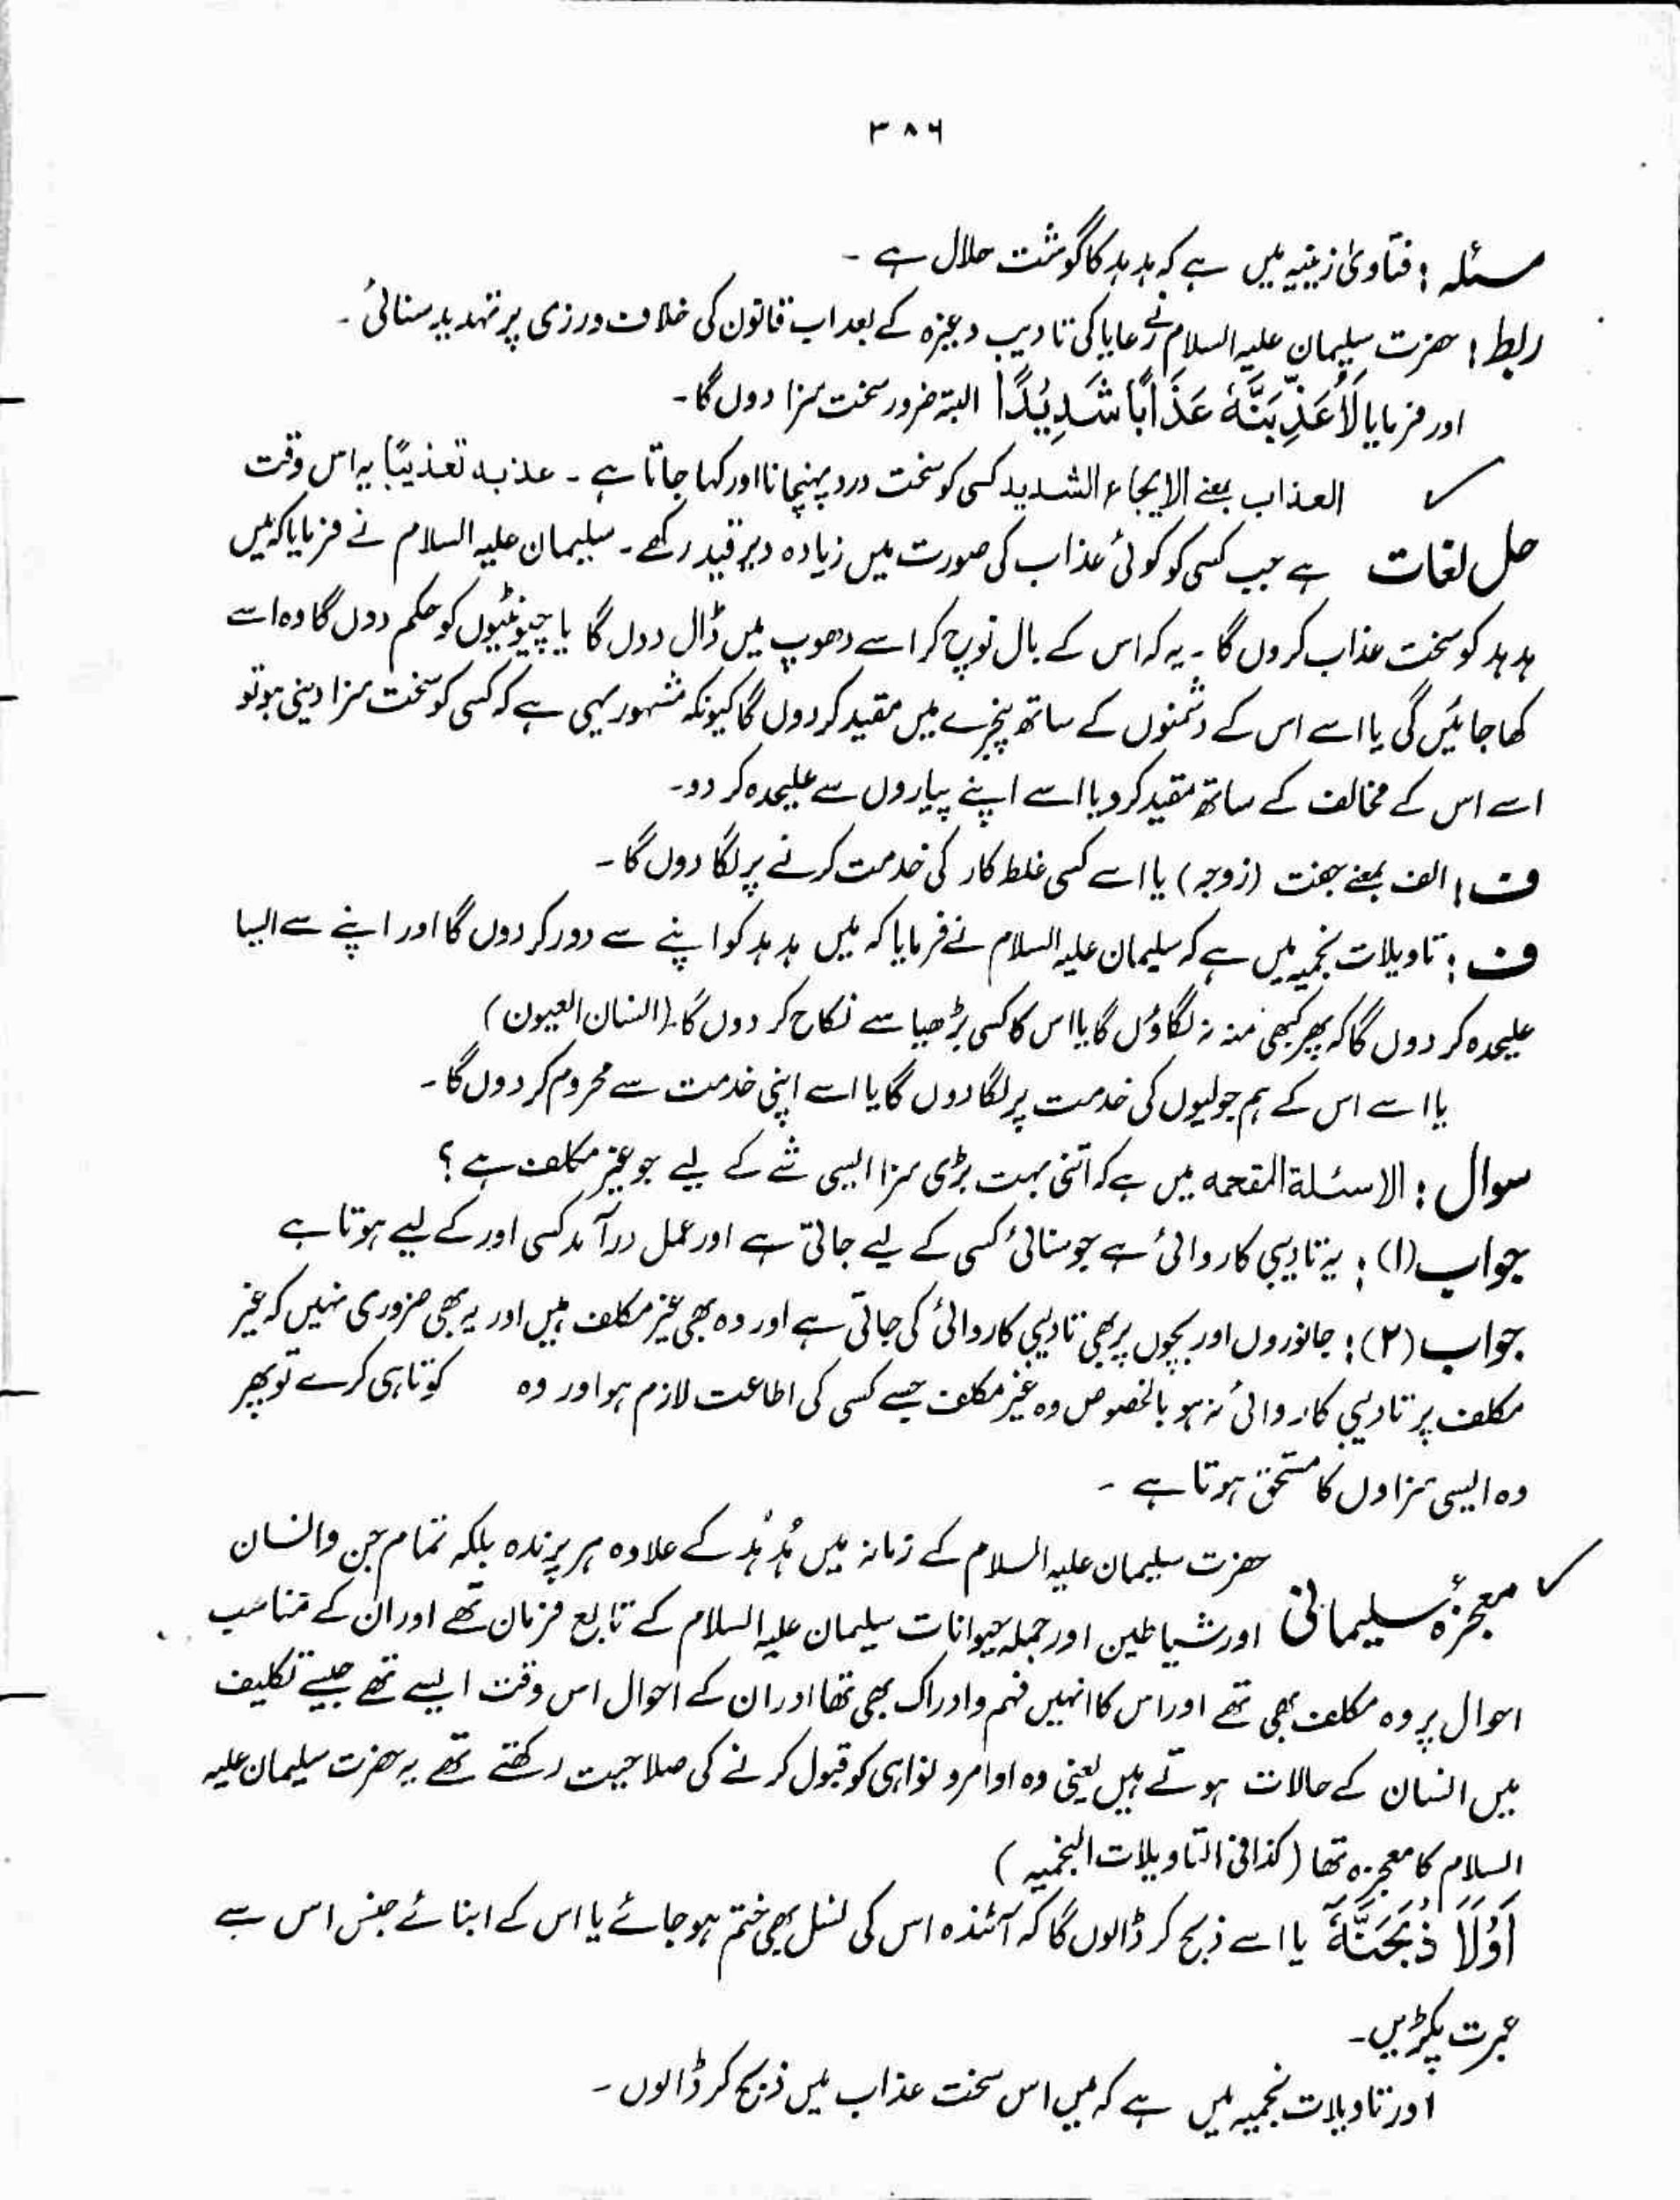 ۳۸۶
مسئلہ : فتاویٰ زینیہ میں ہے کہ ہدہد کا گوشت حلال ہے ۔
ربط : حضرت سلیمان علیہ السلام نے رعایا کی تادیب وغیرہ کے بعد اب قانون کی خلاف ورزی پر تہدید سنائی ۔
اور فرمایا لَاُعَذِّبَنَّهٗ عَذَابًا شَدِيْدًا البتہ ضرور سخت سزا دوں گا ۔
العذاب بمعنے الایجاع الشدید کسی کو سخت درد پہنچانا اور کہا جاتا ہے ۔ عذبہ تعذیبًا یہ اس وقت
حل لغات ہے جب کسی کو کوئی عذاب کی صورت میں زیادہ دیر قید رکھے ۔ سلیمان علیہ السلام نے فرمایا کہ میں
ہدہد کو سخت عذاب کروں گا ۔ یہ کہ اس کے بال نوچ کر اسے دھوپ میں ڈال دوں گا یا چیونٹیوں کو حکم دوں گا وہ اسے
کھا جائیں گی یا اسے اس کے دشمنوں کے ساتھ پنجرے میں مقید کر دوں گا کیونکہ مشہور یہی ہے کہ کسی کو سخت سزا دینی ہو تو
اسے اس کے مخالف کے ساتھ مقید کر دو یا اسے اپنے پیاروں سے علیحدہ کر دو۔
ف : الف بمعنے جفت (زوجہ) یا اسے کسی غلط کار کی خدمت کرنے پر لگا دوں گا ۔
ف : تاویلات نجمیہ میں ہے کہ سلیمان علیہ السلام نے فرمایا کہ میں ہدہد کو اپنے سے دور کر دوں گا اور اپنے سے ایسا
علیحدہ کر دوں گا کہ پھر کبھی منہ نہ لگاؤں گا یا اس کا کسی بڑھیا سے نکاح کر دوں گا ۔ (انسان العیون)
یا اسے اس کے ہم جولیوں کی خدمت پر لگا دوں گا یا اسے اپنی خدمت سے محروم کر دوں گا ۔
سوال : الاسئلة المقحمه میں ہے کہ اتنی بہت بڑی سزا ایسی شے کے لیے جو غیر مکلف ہے ؟
جواب (۱) : یہ تادیبی کاروائی ہے جو سنائی کسی کے لیے جاتی ہے اور عمل درآمد کسی اور کے لیے ہوتا ہے
جواب (۲) : جانوروں اور بچوں پر بھی تادیبی کاروائی کی جاتی ہے اور وہ بھی غیر مکلف ہیں اور یہ بھی ضروری نہیں کہ غیر
مکلف پر تادیبی کاروائی نہ ہو بالخصوص وہ غیر مکلف جسے کسی کی اطاعت لازم ہو اور وہ کوتاہی کرے تو پھر
وہ ایسی سزاوں کا مستحق ہوتا ہے ۔
حضرت سلیمان علیہ السلام کے زمانہ میں ہُدہُد کے علاوہ ہر پرندہ بلکہ تمام جن و انسان
معجزۂ سلیمانی اور شیاطین اور جملہ حیوانات سلیمان علیہ السلام کے تابع فرمان تھے اور ان کے مناسب
احوال پر وہ مکلف بھی تھے اور اس کا انہیں فہم و ادراک بھی تھا اور ان کے احوال اس وقت ایسے تھے جیسے تکلیف
میں انسان کے حالات ہوتے ہیں یعنی وہ اوامر و نواہی کو قبول کرنے کی صلاحیت رکھتے تھے یہ حضرت سلیمان علیہ
السلام کا معجزہ تھا (کذا فی التاویلات النجمیہ)
اَوْلَاَ ذْبَحَنَّهٗ یا اسے ذبح کر ڈالوں گا کہ آئندہ اس کی نسل بھی ختم ہو جائے یا اس کے ابنائے جنس اس سے
عبرت پکڑیں ۔
اور تاویلات نجمیہ میں ہے کہ میں اس سخت عذاب میں ذبح کر ڈالوں ۔